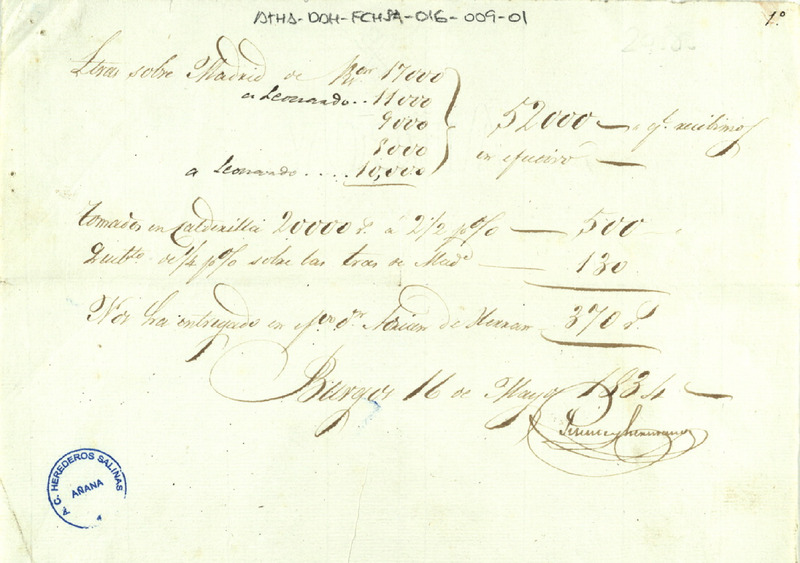 ATHA-DAH-FCHSA-016-009-01
1º
Ltras sobre Madrid de Rs vn 17000
a Leonardo.. 11000
9000
52000 — a qe. recibimos
5000
en efectivo —
a Leonardo ..... 10,000
tomados en Calderilla 20000 rs. á 2 1/2 p% — 500
Quebto. de 1/4 p% sobre las tras de Madd — 130
Nos ha entregado en de Herran 370 rs.
Burgos 16 de Mayo 1834 —
hermano
A.C. HEREDEROS SALINAS
AÑANA
A